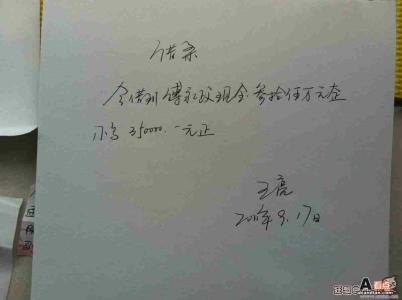 借条
今借到傅永政现金叁拾伍万元整
小写350000.一元正
王亮
2011年9.17日
A看点